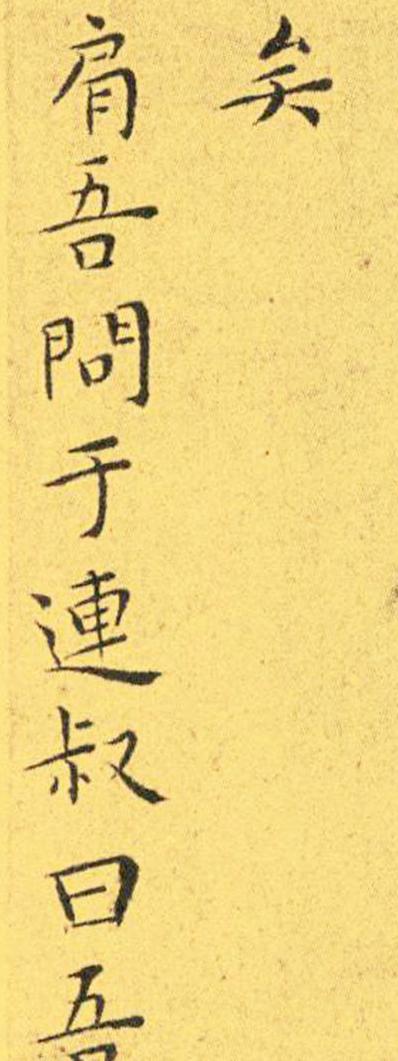 矣
肩吾問于連叔曰吾